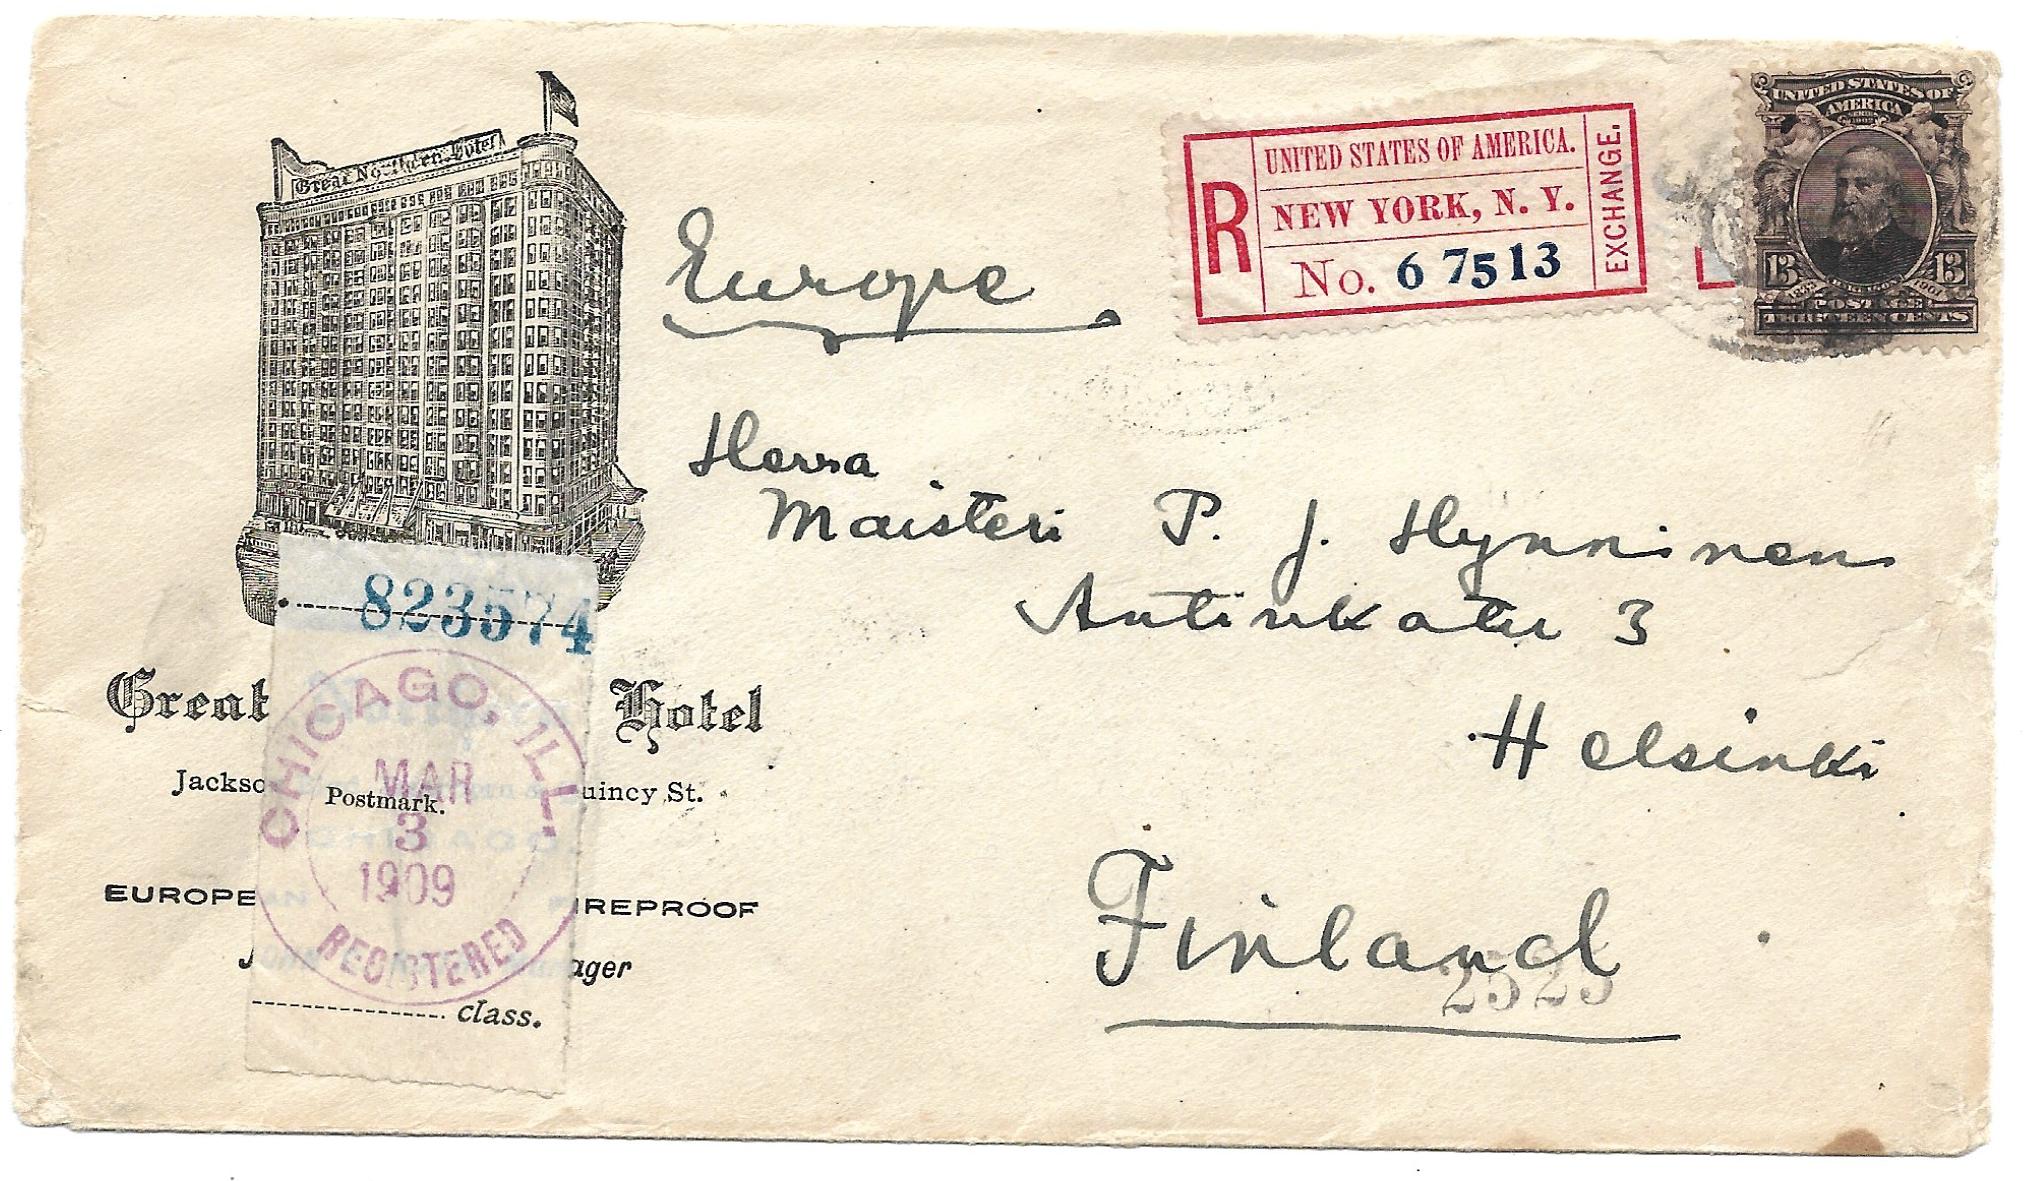 Great Northern Hotel
Europe
R
UNITED STATES OF AMERICA.
NEW YORK, N. Y.
No. 6 7513
EXCHANGE.
UNITED STATES OF
AMERICA
SERIES 1902
13 13
1901
POSTAGE
THIRTEEN CENTS
Herra
Maisteri P. J. Hynninen
Antinkatu 3
Helsinki
Finland
2525
823574
Great Hotel
Jackso uincy St.
CHICAGO, ILL.
MAR
3
1909
REGISTERED
Postmark.
CHICAGO.
EUROPEAN FIREPROOF
ager
class.